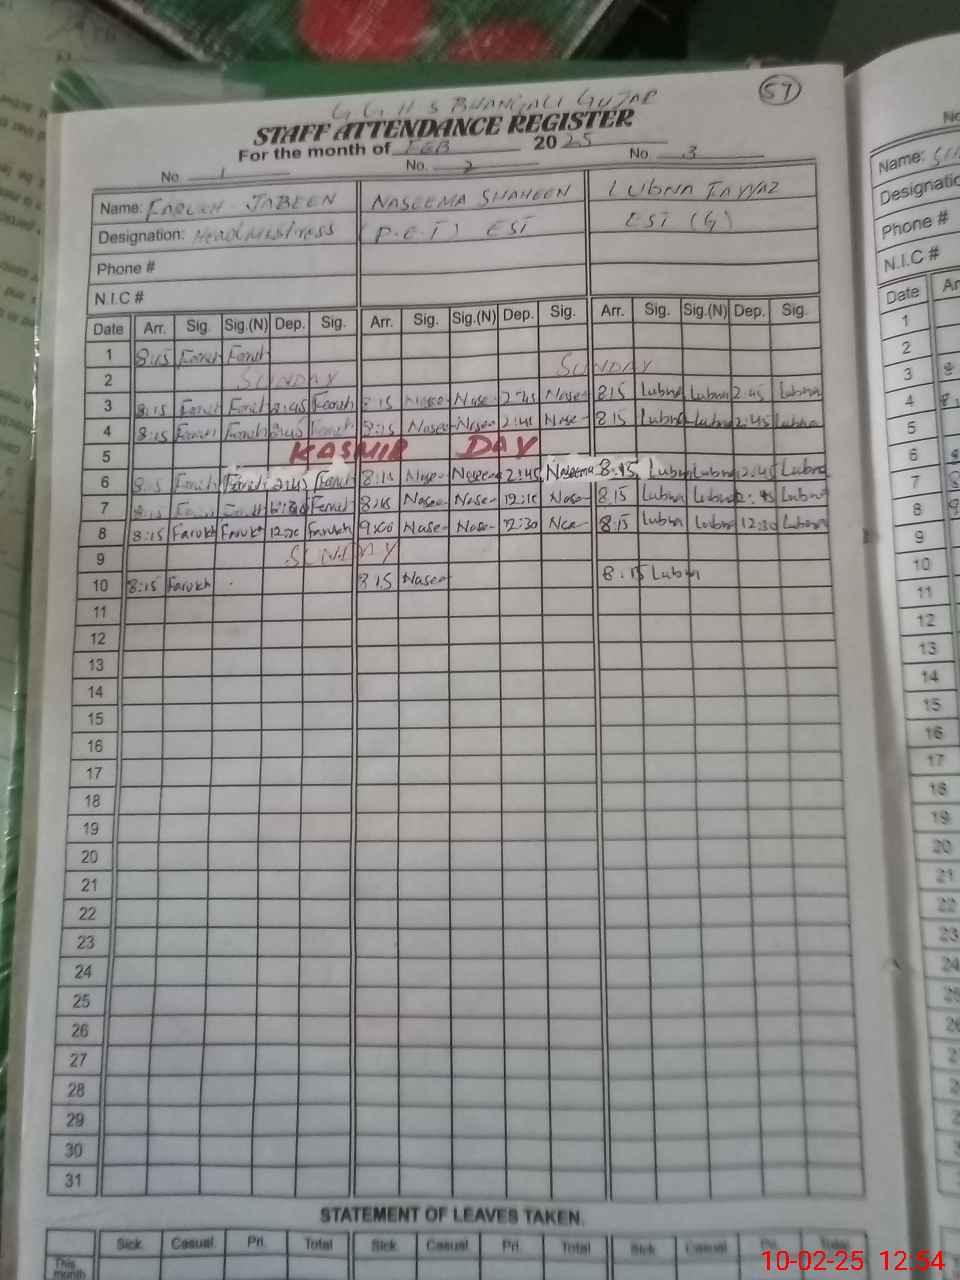 G G H S BHANGALI GUJAR
57
STAFF ATTENDANCE REGISTER
For the month of FEB 2025
No. 1 No. 2 No. 3
Name: FARUKH JABEEN NASEEMA SHAHEEN LUBNA TAYYAZ
Designation: Headmistress (P.E.T) EST EST (G)
Phone #
N.I.C #
Date Arr. Sig. Sig.(N) Dep. Sig. Arr. Sig. Sig.(N) Dep. Sig. Arr. Sig. Sig.(N) Dep. Sig.
1 8:15
2 SUNDAY SUNDAY
3 8:15 2:45 8:15 Nasee Nase 2:45 Nasee 8:15 Lubna Lubna 2:45 Lubna
4 8:15 8:15 Nasee Nasee Nase 8:15 Lubna Lubna 2:45 Lubna
5 KASMIR DAY
6 8:15 2:45 8:15 Nase Naseem 2:45 Naseema 8:15 Lubna Lubna 2:45 Lubna
7 8:15 Nasee Nase 12:15 Nase 8:15 Lubna Lubna Lubna
8 8:15 Farukh Farukh Farukh 9:00 Nase Nase 12:30 8:15 Lubna Lubna 12:30 Lubna
9 SUNDAY
10 8:15 Farukh 8:15 Nasee 8:15 Lubna
11
12
13
14
15
16
17
18
19
20
21
22
23
24
25
26
27
28
29
30
31
STATEMENT OF LEAVES TAKEN.
Sick. Casual. Pri. Total Sick. Casual. Pri. Total Sick. Casual. Total
This month
Name:
Designatio
Phone #
N.I.C #
Date Ar
1
2
3
4
5
6
7
8
9
10
11
12
13
14
15
16
17
18
19
20
21
22
23
24
10-02-25 12:54